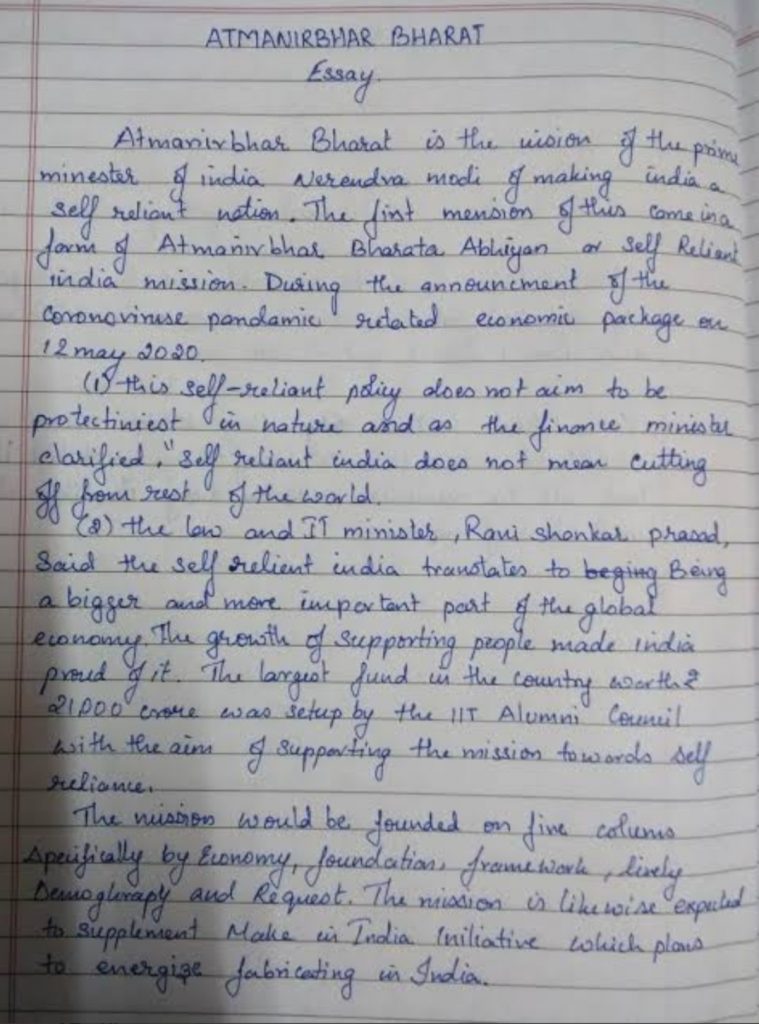 ATMANIRBHAR BHARAT
Essay.
Atmanirbhar Bharat is the vision of the prime
minester of india Nerendra modi of making india a
self reliant nation. The first mension of this come in a
form of Atmanirbhar Bharata Abhiyan or Self Reliant
india mission. During the announcment of the
Coronoviruse pandamic retated economic package on
12 may 2020.
(1) this self-reliant policy does not aim to be
protectiniest in nature and as the finance minister
clarified, "self reliant india does not mean cutting
off from rest of the world.
(2) the law and IT minister, Ravi shonkar prasad,
Said the self relient india translates to beging Being
a bigger and more important part of the global
economy. The growth of supporting people made india
proud of it. The largest fund in the country worth ₹
21000 crore was setup by the IIT Alumni Council
with the aim of supporting the mission towards self
reliance.
The mission would be founded on five colums
specifically by Economy, foundation, framework, lively
Demoghrapy and Request. The mission is likewise expected
to supplement Make in India Iniliative which plans
to energize fabricating in India.